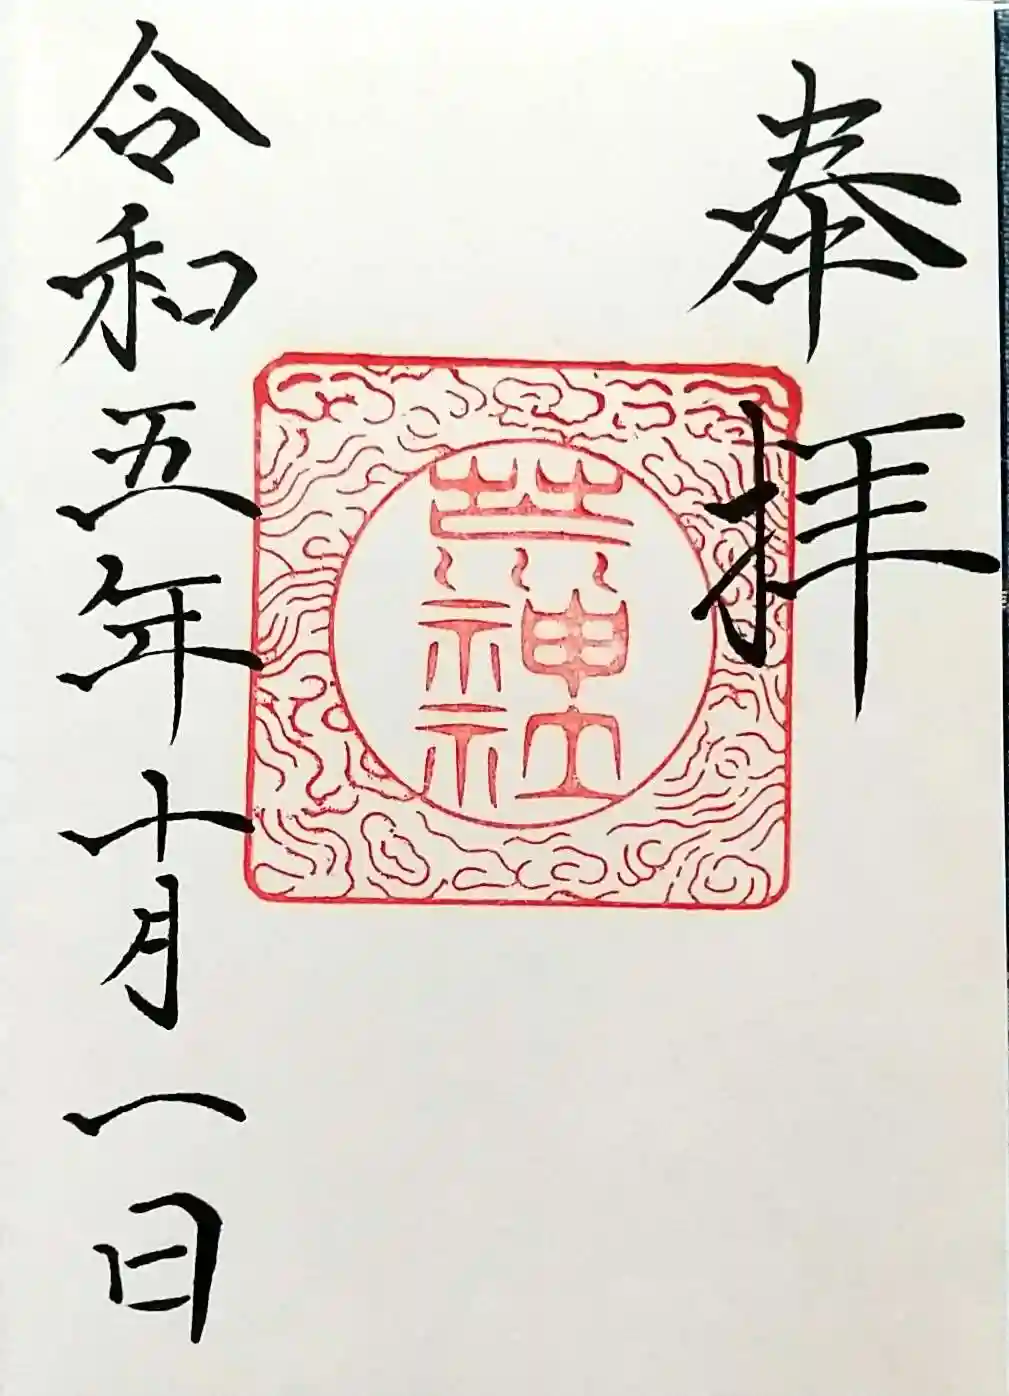 奉拝
荒神社
令和五年十月一日